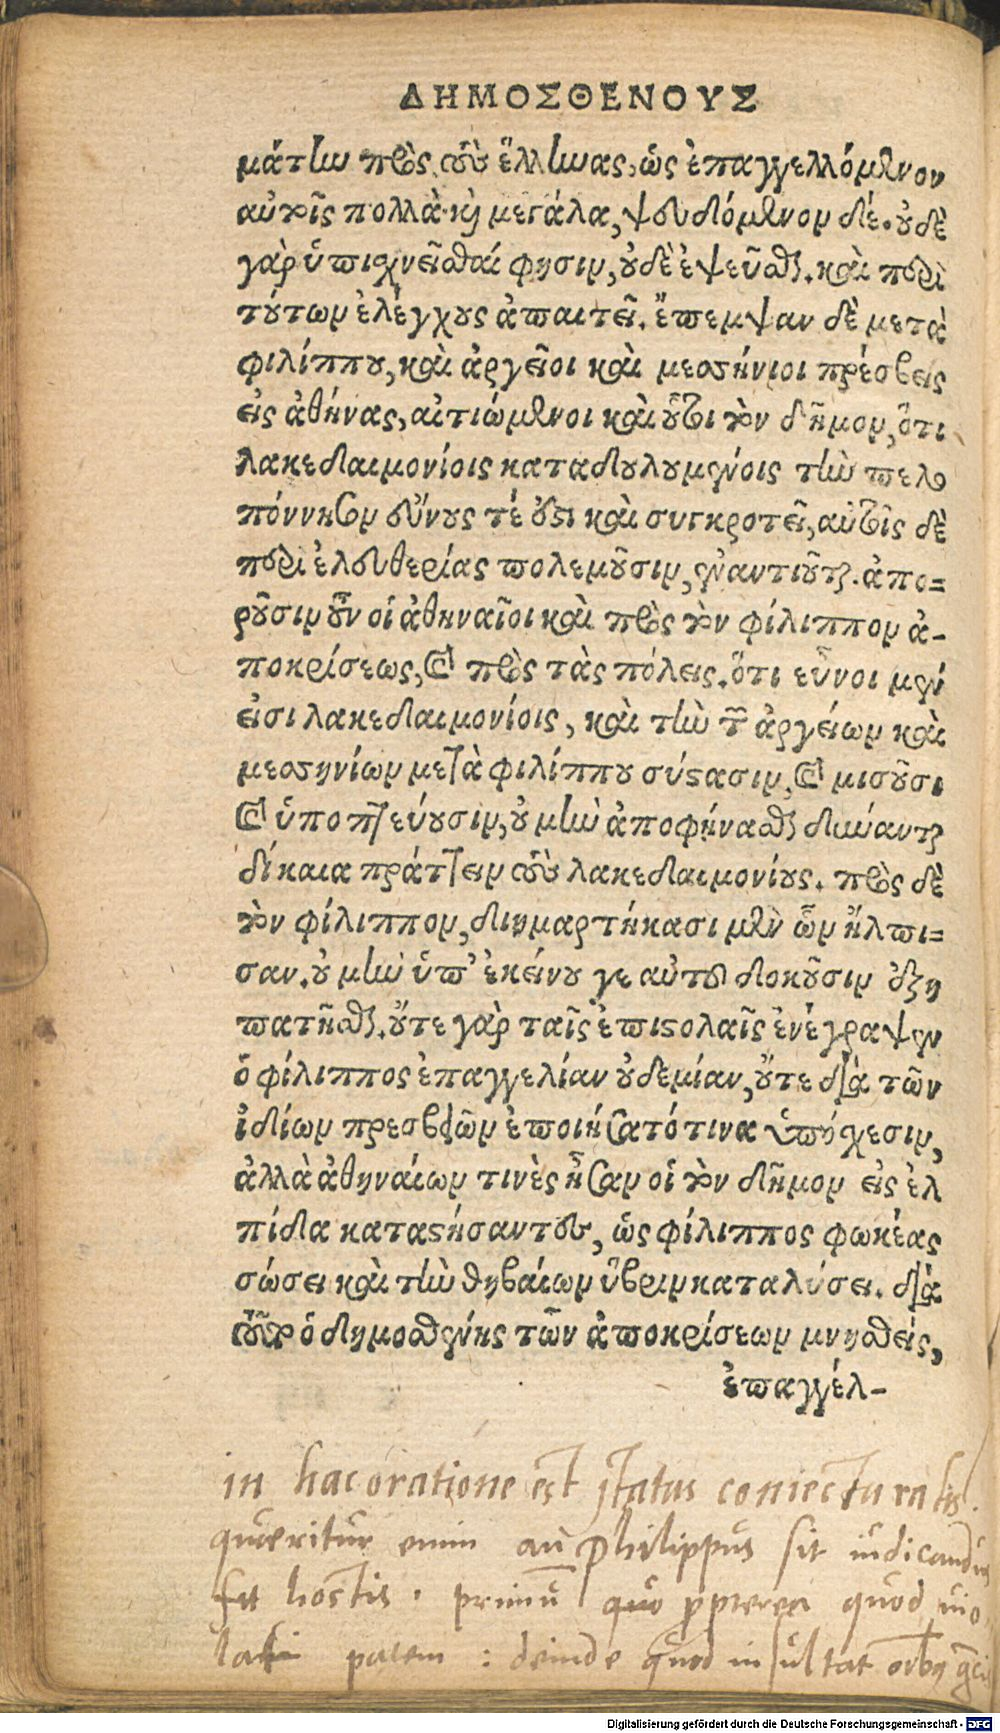 ΔΗΜΟΣΘΕΝΟΥΣ
μάτην πρὸς τοὺς ἕλληνας, ὡς ἐπαγγελλόμενον
αὐτοῖς πολλὰ καὶ μεγάλα, ψευδόμενον δέ. οὐδὲ
γὰρ ὑπισχνεῖσθαί φησιν, οὐδὲ ἐψεῦσθαι. καὶ περὶ
τούτων ἐλέγχους ἀπαιτεῖ. ἔπεμψαν δὲ μετὰ
φιλίππου, καὶ ἀργεῖοι καὶ μεσσήνιοι πρέσβεις
εἰς ἀθήνας, αἰτιώμενοι καὶ οὗτοι τὸν δῆμον, ὅτι
λακεδαιμονίοις καταδουλουμένοις τὴν πελο
πόννησον εὔνους τέ ἐστι καὶ συγκροτεῖ, αὐτοῖς δὲ
περὶ ἐλευθερίας πολεμοῦσιν, ἐναντιοῦται. ἀπο=
ροῦσιν οὖν οἱ ἀθηναῖοι καὶ πρὸς τὸν φίλιππον ἀ-
ποκρίσεως, καὶ πρὸς τὰς πόλεις. ὅτι εὖνοι μέν
εἰσι λακεδαιμονίοις, καὶ τὴν τῶν ἀργείων καὶ
μεσσηνίων μετὰ φιλίππου σύστασιν, καὶ μισοῦσι
καὶ ὑποπτεύουσιν, οὐ μὴν ἀποφήνασθαι δύνανται
δίκαια πράττειν τοὺς λακεδαιμονίους. πρὸς δὲ
τὸν φίλιππον, διημαρτήκασι μὲν ὧν ἤλπι=
σαν. οὐ μὴν ὑπ' ἐκείνου γε αὐτοῦ δοκοῦσιν ἐξη
πατῆσθαι. οὔτε γὰρ ταῖς ἐπιστολαῖς ἐνέγραψεν
ὁ φίλιππος ἐπαγγελίαν οὐδεμίαν, οὔτε διὰ τῶν
ἰδίων πρεσβεῶν ἐποιήσατό τινα ὑπόσχεσιν,
ἀλλὰ ἀθηναίων τινὲς ἦσαν οἱ τὸν δῆμον εἰς ἐλ
πίδα καταστήσαντες, ὡς φίλιππος φωκέας
σώσει καὶ τὴν θηβαίων ὕβριν καταλύσει. διὰ
ὁ δημοσθένης τῶν ἀποκρίσεων μνησθεὶς,
ἐπαγγέλ-
in hac oratione est status coniecturalis.
quæritur enim an Philippus sit iudicandus
hostis. primũ quo propterea quod uio
lauit pacem: deinde quod insultat
Digitalisierung gefördert durch die Deutsche Forschungsgemeinschaft - DFG